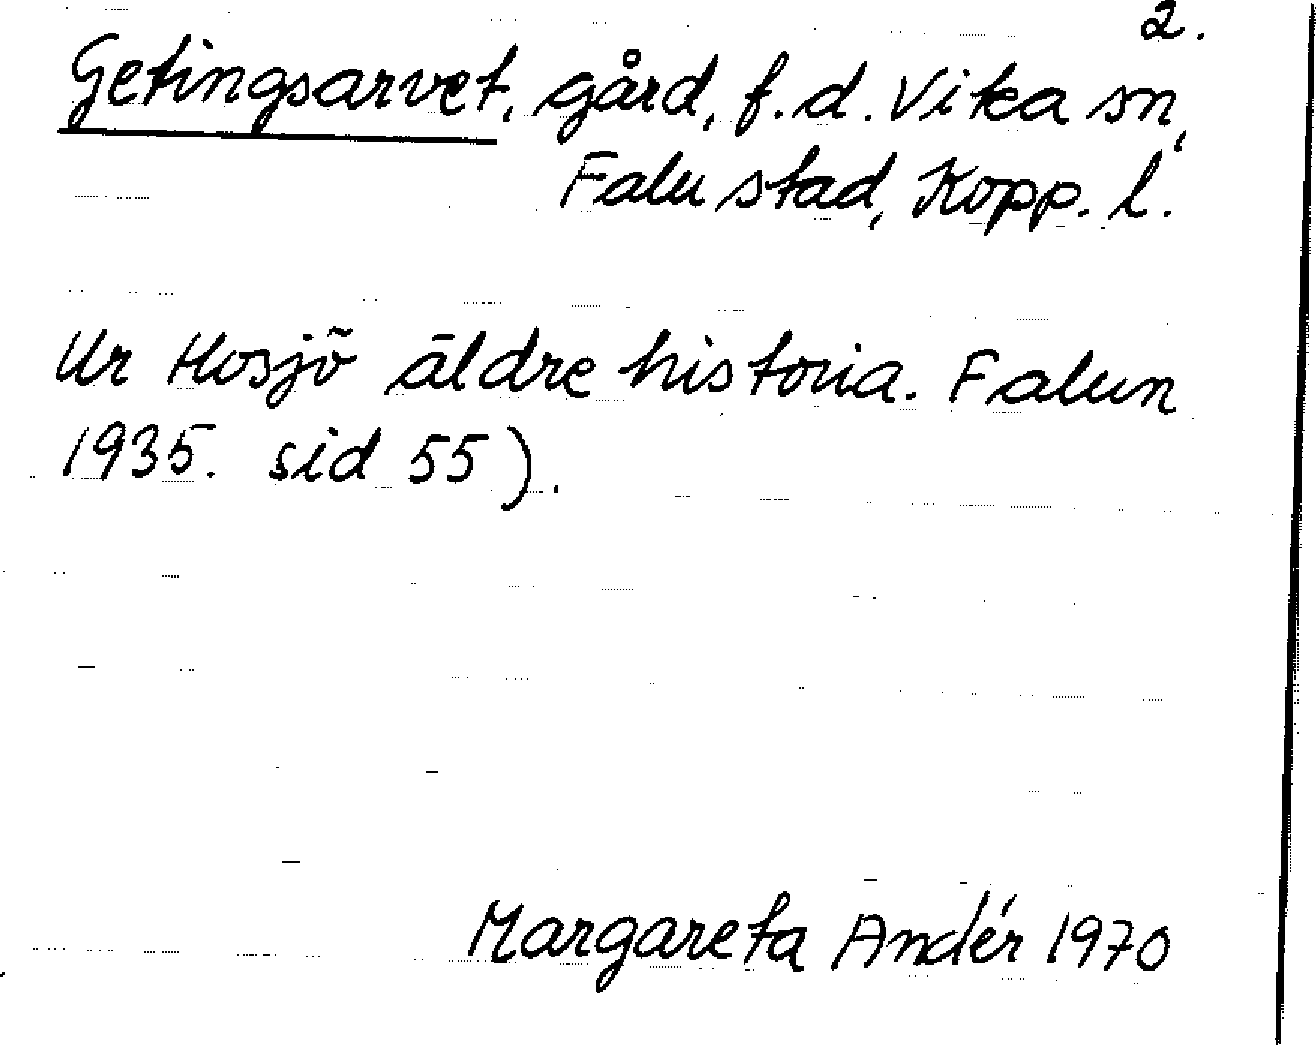 2.
Getingsarvet, gård, f.d. Vika sn,
Falu stad, Kopp. l.
Ur Hosjö äldre historia. Falun
1935. sid 55).
Margareta Andér 1970